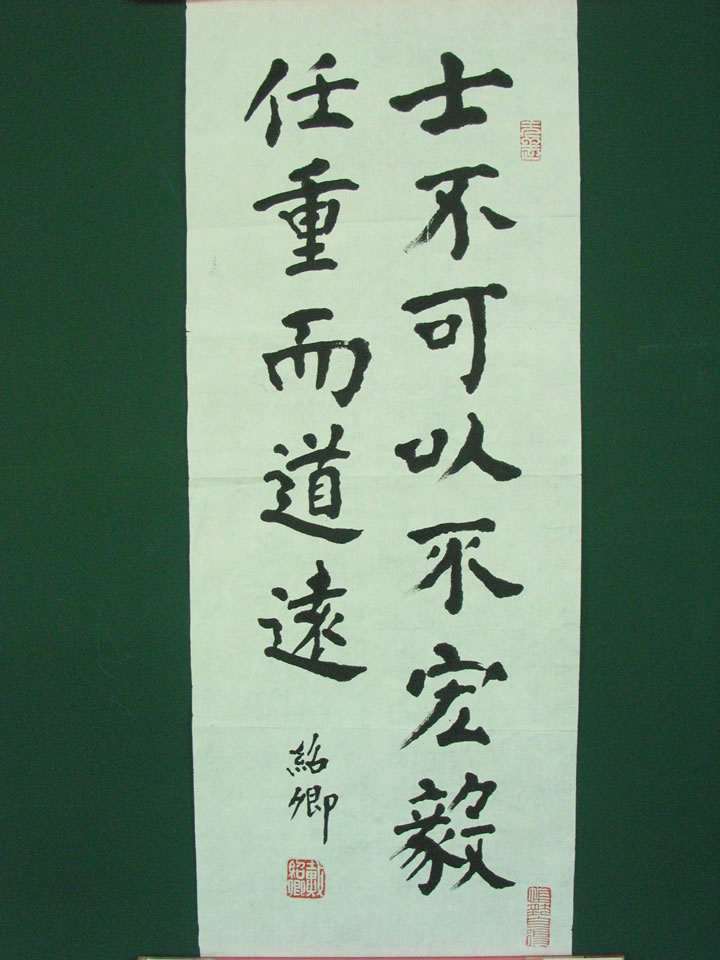 士不可以不宏毅
任重而道遠
紹卿
戴紹卿